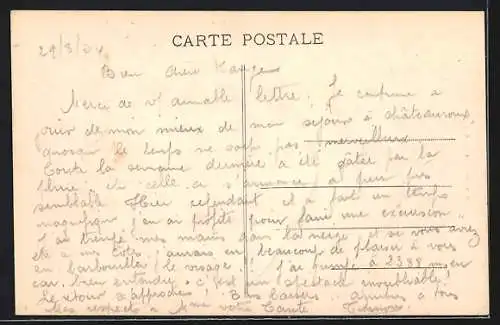 CARTE POSTALE
29/8/24
Bien chère
Merci de vt aimable lettre. Je continue à
jouir de mon mieux de mon séjour à châteauroux,
quoique le temps ne soit pas merveilleux
Toute la semaine dernière a été gâtée par la
pluie, et celle ci s'annonce à peu près
semblable Hier cependant il a fait un temps
magnifique j'en ai profité pour faire une excursion
J'ai trempé mes mains dans la neige et si vous aviez
été à mes côtés j'aurais eu beaucoup de plaisir à vous
en barbouiller le visage. J'ai à 2388 m, en
car, bien entendu, c'est un spectacle inoubliable!
Le retour approche! Bons baisers à vous
Mes respects à Mme votre Tante